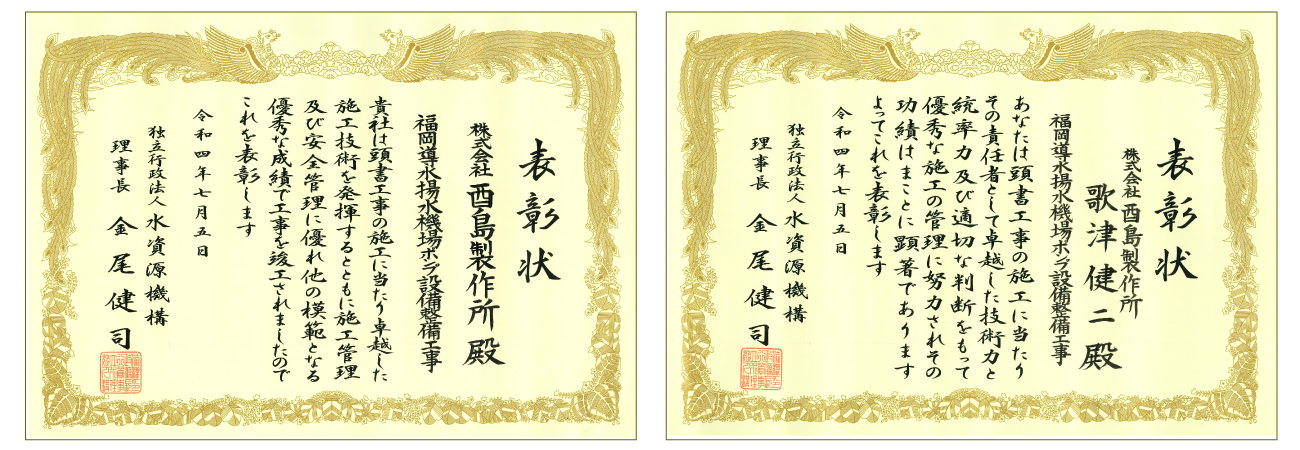 表彰状
株式会社 酉島製作所 殿
福岡導水揚水機場ポンプ設備整備工事
貴社は頭書工事の施工に当たり卓越した
施工技術を発揮するとともに施工管理
及び安全管理に優れ他の模範となる
優秀な成績で工事を竣工されましたので
これを表彰します
令和四年七月五日
独立行政法人 水資源機構
理事長 金尾健司
表彰状
株式会社 酉島製作所
歌津健二殿
福岡導水揚水機場ポンプ設備整備工事
あなたは頭書工事の施工に当たり
その責任者として卓越した技術力と
統率力及び適切な判断をもって
優秀な施工の管理に努力されその
功績はまことに顕著であります
よってこれを表彰します
令和四年七月五日
独立行政法人 水資源機構
理事長 金尾健司